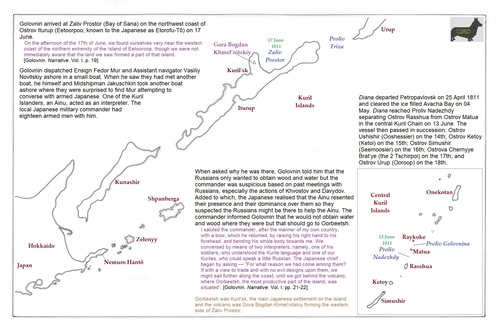 Golovnin arrived at Zaliv Prostor (Bay of Sana) on the northwest coast of
Ostrov Iturup (Eetooroop; known to the Japanese as Etorofu-Tō) on 17
June.
On the afternoon of the 17th of June, we found ourselves very near the western
coast of the northern extremity of the Island of Eetooroop, though we were not
immediately aware that the land we saw formed a part of that island.
[Golovnin. Narrative. Vol I. p. 19]
Golovnin dispatched Ensign Fedor Mur and Assistant navigator Vasiliy
Novitskiy ashore in a small boat. When he saw they had met another
boat, he himself and Midshipman Jakuschkin took another boat
ashore where they were surprised to find Mur attempting to
converse with armed Japanese. One of the Kuril
Islanders, an Ainu, acted as an interpreter. The
local Japanese military commander had
eighteen armed men with him.
Gora Bogdan
Khmel'nitskiy
17 June
1811
Zaliv
Prostor
Kuril'sk
Iturup
Kuril
Islands
Proliv
Friza
Urup
Diana departed Petropavlovsk on 25 April 1811
and cleared the ice filled Avacha Bay on 04
May. Diana reached Proliv Nadezhdy
separating Ostrov Rasshua from Ostrov Matua
in the central Kuril Chain on 13 June. The
vessel then passed in succession: Ostrov
Ushishir (Ooshessier) on the 14th; Ostrov Ketoy
(Ketoi) on the 15th; Ostrov Simushir
(Seemoosier) on the 16th; Ostrova Chernyye
Brat'ye (the 2 Tschirpoi) on the 17th; and
Ostrov Urup (Ooroop) on the 18th.
Kunashir
Shpanberga
Zelenyy
Nemuro Hantō
Hokkaido
Japan
When asked why he was there, Golovnin told him that the
Russians only wanted to obtain wood and water but the
commander was suspicious based on past meetings with
Russians, especially the actions of Khvostov and Davydov.
Added to which, the Japanese realised that the Ainu resented
their presence and their dominance over them so they
suspected the Russians might be there to help the Ainu. The
commander informed Golovnin that he would not obtain water
and wood where they were but that should go to Oorbeetsh.
I saluted the commander, after the manner of my own country,
with a bow, which he returned, by raising his right hand to his
forehead, and bending his whole body towards me. We
conversed by means of two interpreters, namely, one of his
soldiers, who understood the Kurile language and one of our
Kuriles, who could speak a little Russian. The Japanese chief
began by asking — "For what reason we had come among them?
If with a view to trade and with no evil designs upon them, we
might sail further along the coast, until we got behind the volcano,
where Oorbeetsh, the most productive part of the island, was
situated". [Golovnin. Narrative. Vol I. pp. 21-22]
Oorbeetsh was Kuril'sk, the main Japanese settlement on the island
and the volcano was Gora Bogdan Khmel'nitskiy forming the western
side of Zaliv Prostor.
Central
Kuril
Islands
Onekotan
13 June
1811
Proliv
Nadezhdy
Raykoke
Proliv Golovnina
Matua
Rasshua
Ketoy
Simushir